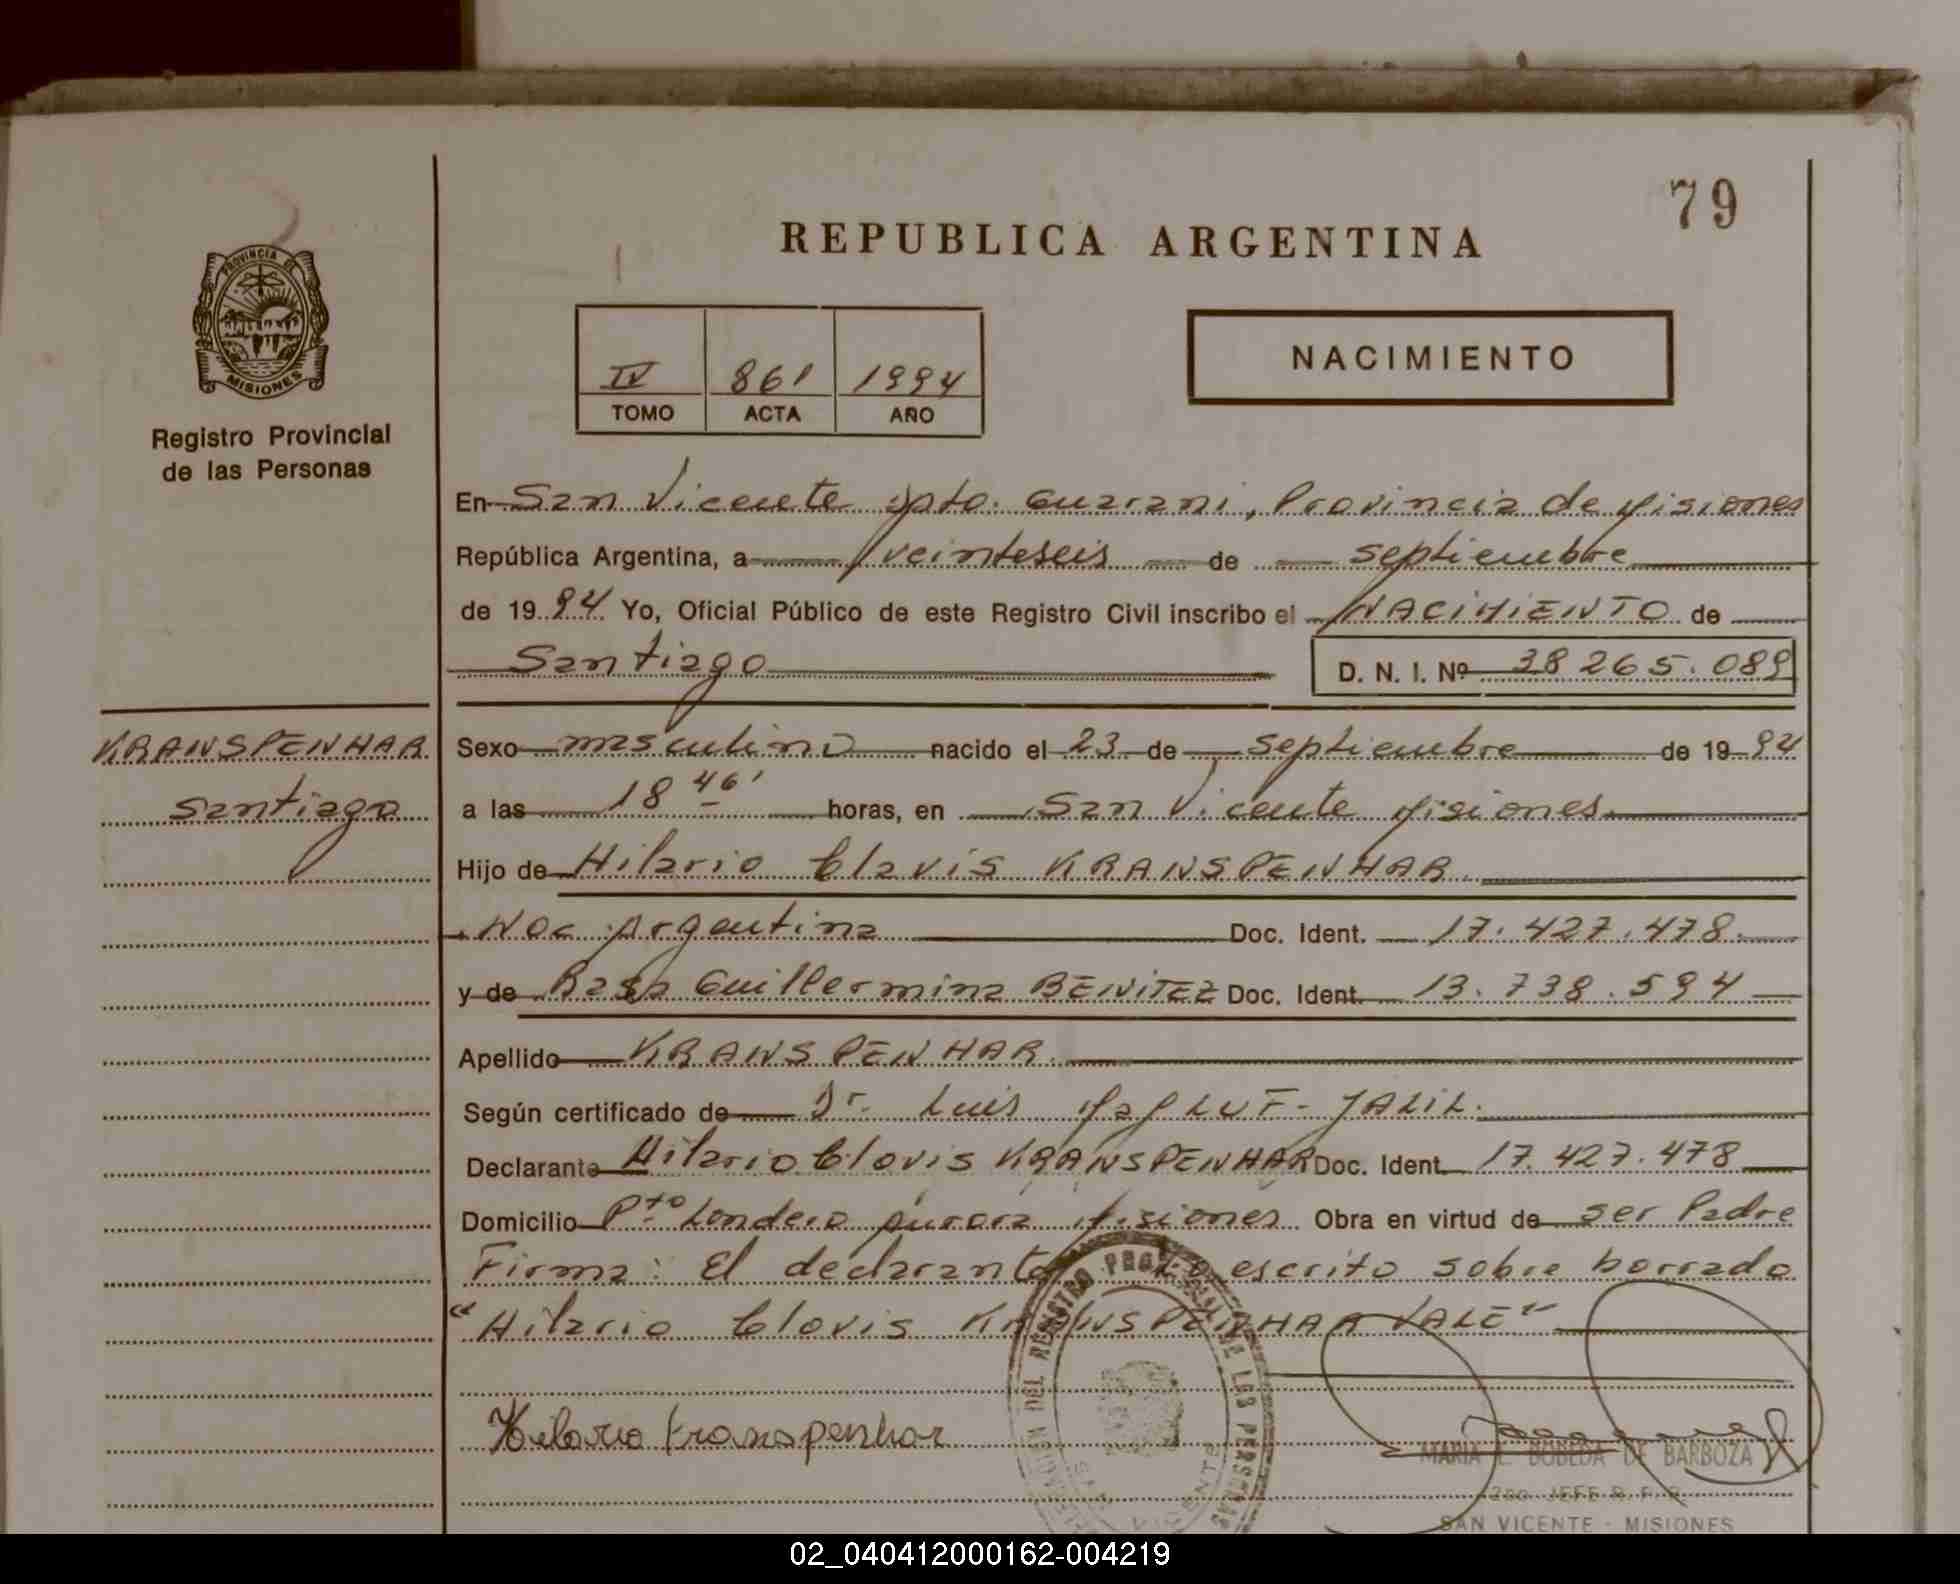 79
REPUBLICA ARGENTINA
PROVINCIA DE
MISIONES
Registro Provincial
de las Personas
IV 861 1994
TOMO ACTA AÑO
NACIMIENTO
En San Vicente Dpto. Guarani, Provincia de Misiones
República Argentina, a veinteseis de septiembre
de 1994 Yo, Oficial Público de este Registro Civil inscribo el NACIMIENTO de
Santiago D. N. I. Nº 38 265.089
KRANSPENHAR
Santiago
Sexo masculino nacido el 23 de septiembre de 1994
a las 18 46' horas, en San Vicente Misiones
Hijo de Hilario Clavis KRANSPENHAR
Nac Argentina Doc. Ident. 17.427.478
y de Rosa Guillermina BENITEZ Doc. Ident. 13.738.594
Apellido KRANSPENHAR
Según certificado de Dr. Luis JALIL.
Declarante Hilario Clovis KRANSPENHAR Doc. Ident. 17.427.478
Domicilio Pto Londero Aurora Misiones Obra en virtud de ser Padre
Firma: El declarante escrito sobre borrado
"Hilario Clovis KRANSPENHAR VALE"
Hilario Kranspenhar
DEL REGISTRO PROVINCIAL DE LAS PERSONAS
SAN VICENTE
MARIA L. BOBEDA DE BARBOZA
2do JEFE R. P. P.
SAN VICENTE - MISIONES
02_040412000162-004219